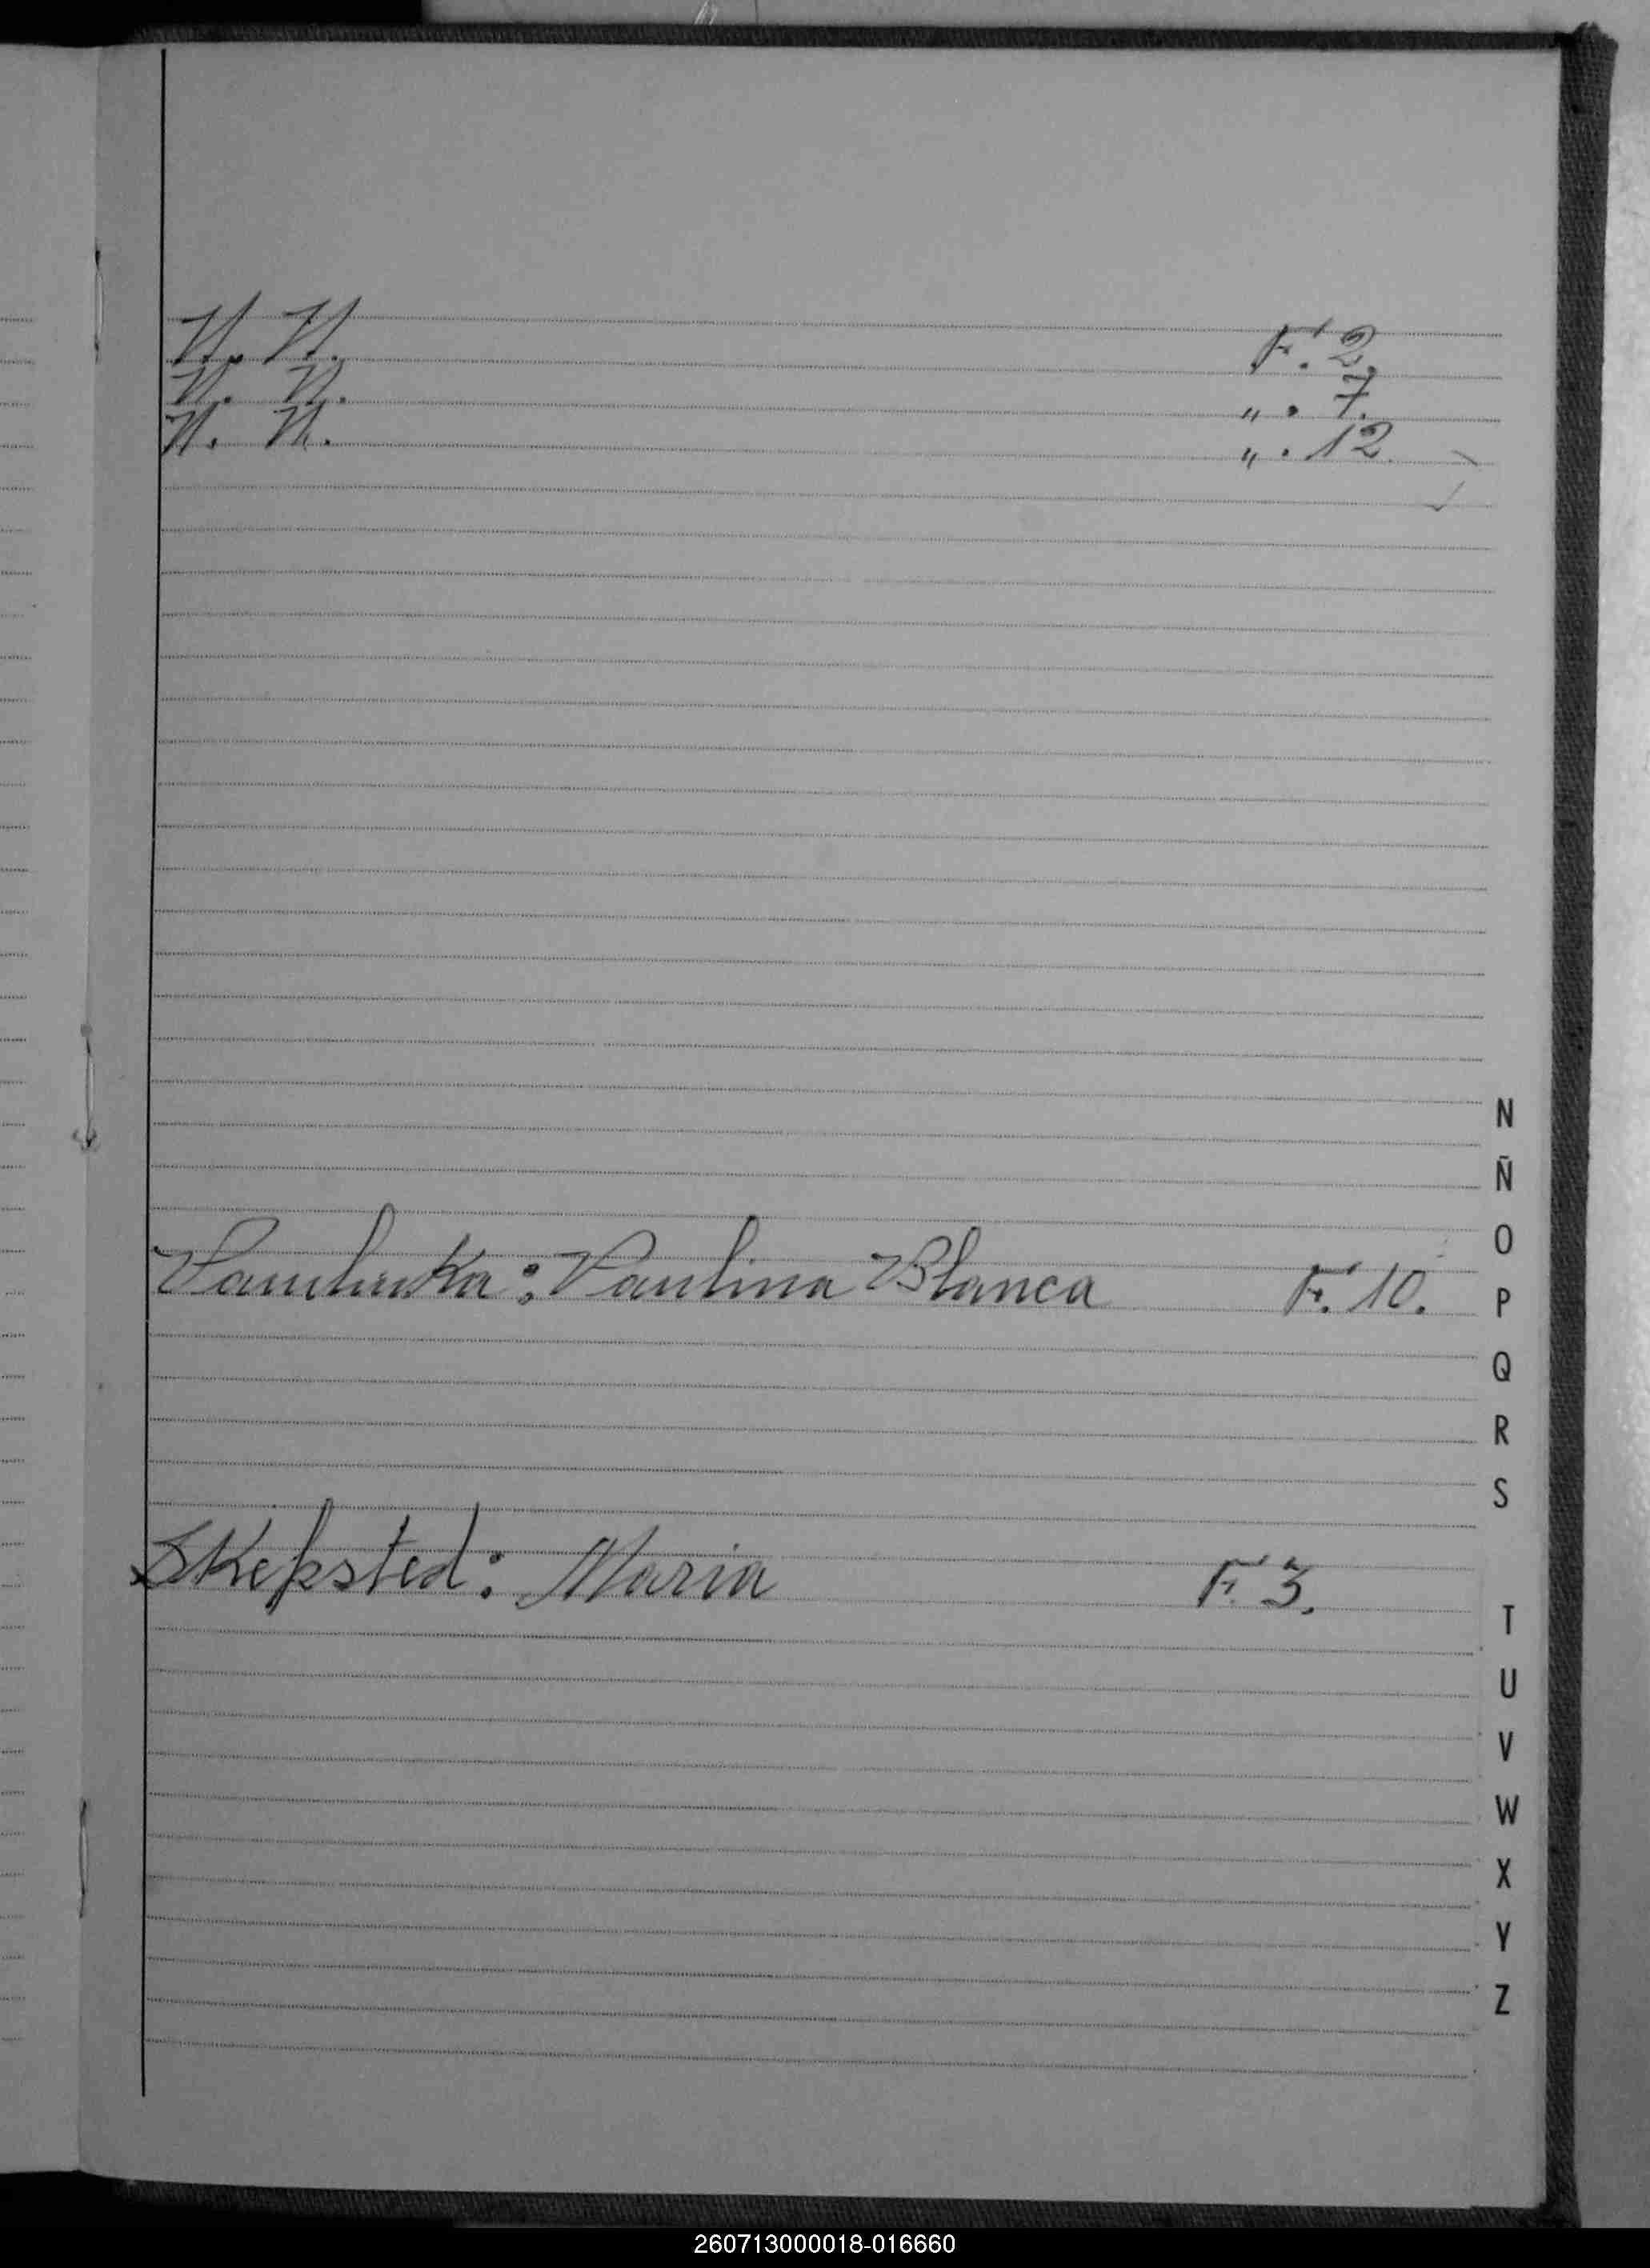 N. N. F. 2.
N. N. „ . 7.
N. N. „ . 12.
N
Ñ
O
: Paulina Blanca F. 10.
P
Q
R
S
Skepsted: Maria F. 3.
T
U
V
W
X
Y
Z
260713000018-016660